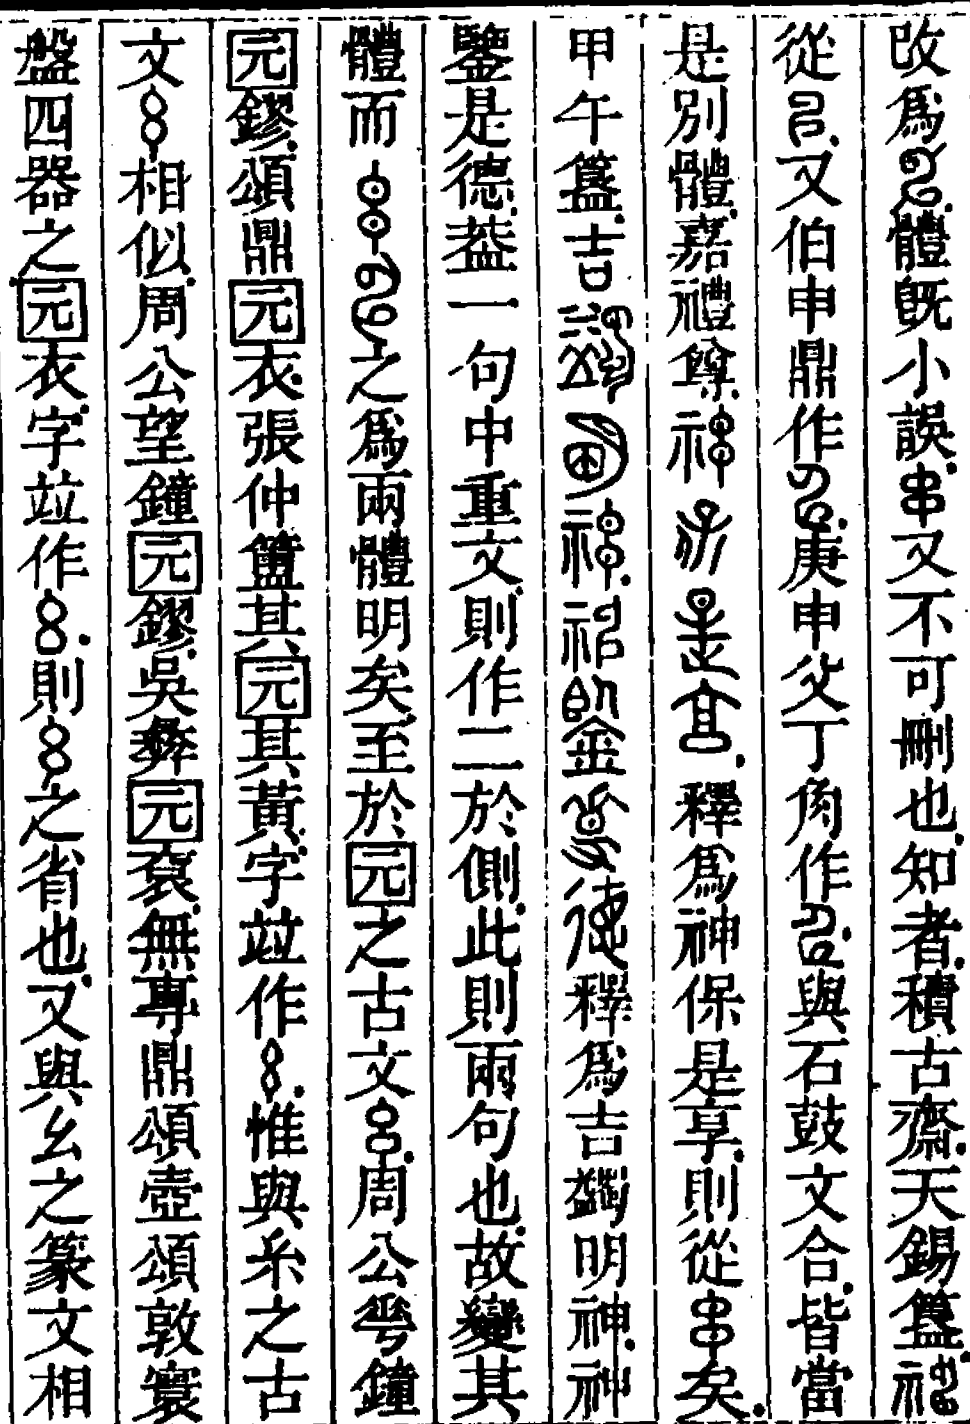 改爲體旣小誤串又不可刪也知者積古齋天錫簋
從又伯申鼎作庚申父丁角作與石鼓文合皆當
是別體嘉禮尊神釋爲神保是享則從串矣
甲午簋吉釋爲吉蠲明神神
鑒是德葢一句中重文則作二於側此則兩句也故變其
體而之爲兩體明矣至於元之古文周公𠌶鐘
元鏐頌鼎元衣張仲簠其元其黃字竝作惟與糸之古
文相似周公望鐘元鏐吳彝元袞無專鼎頌壺頌敦寰
盤四器之元衣字竝作則之省也又與幺之篆文相